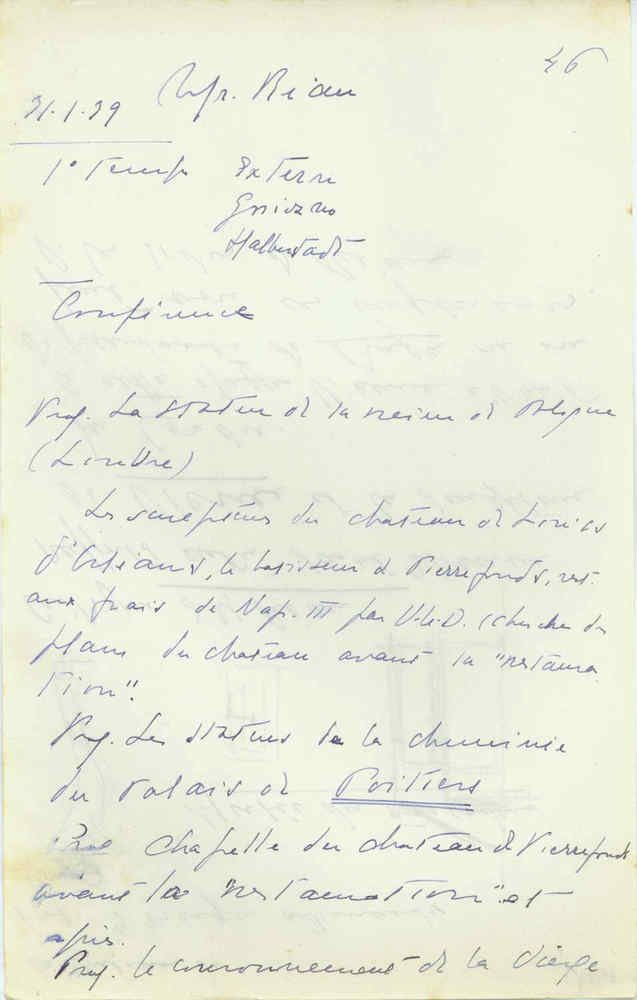 46
31.1.39 Mgr. Réau
1° temps Externe
Halberstadt
Conférence
Proj. La statue de la reine de
(Louvre)
Les sculptures du chateau de Louis
d'Orléans, le batisseur de Pierrefonds, rest.
aux frais de Nap. III par V.-le-D. (chercher des
plans du chateau avant la "restaura
tion".
Proj. Les statues de la cheminée
du Palais de Poitiers
Chapelle du chateau de Pierrefonds
avant la "restauration" et
après.
Proj. le couronnement de la Vierge